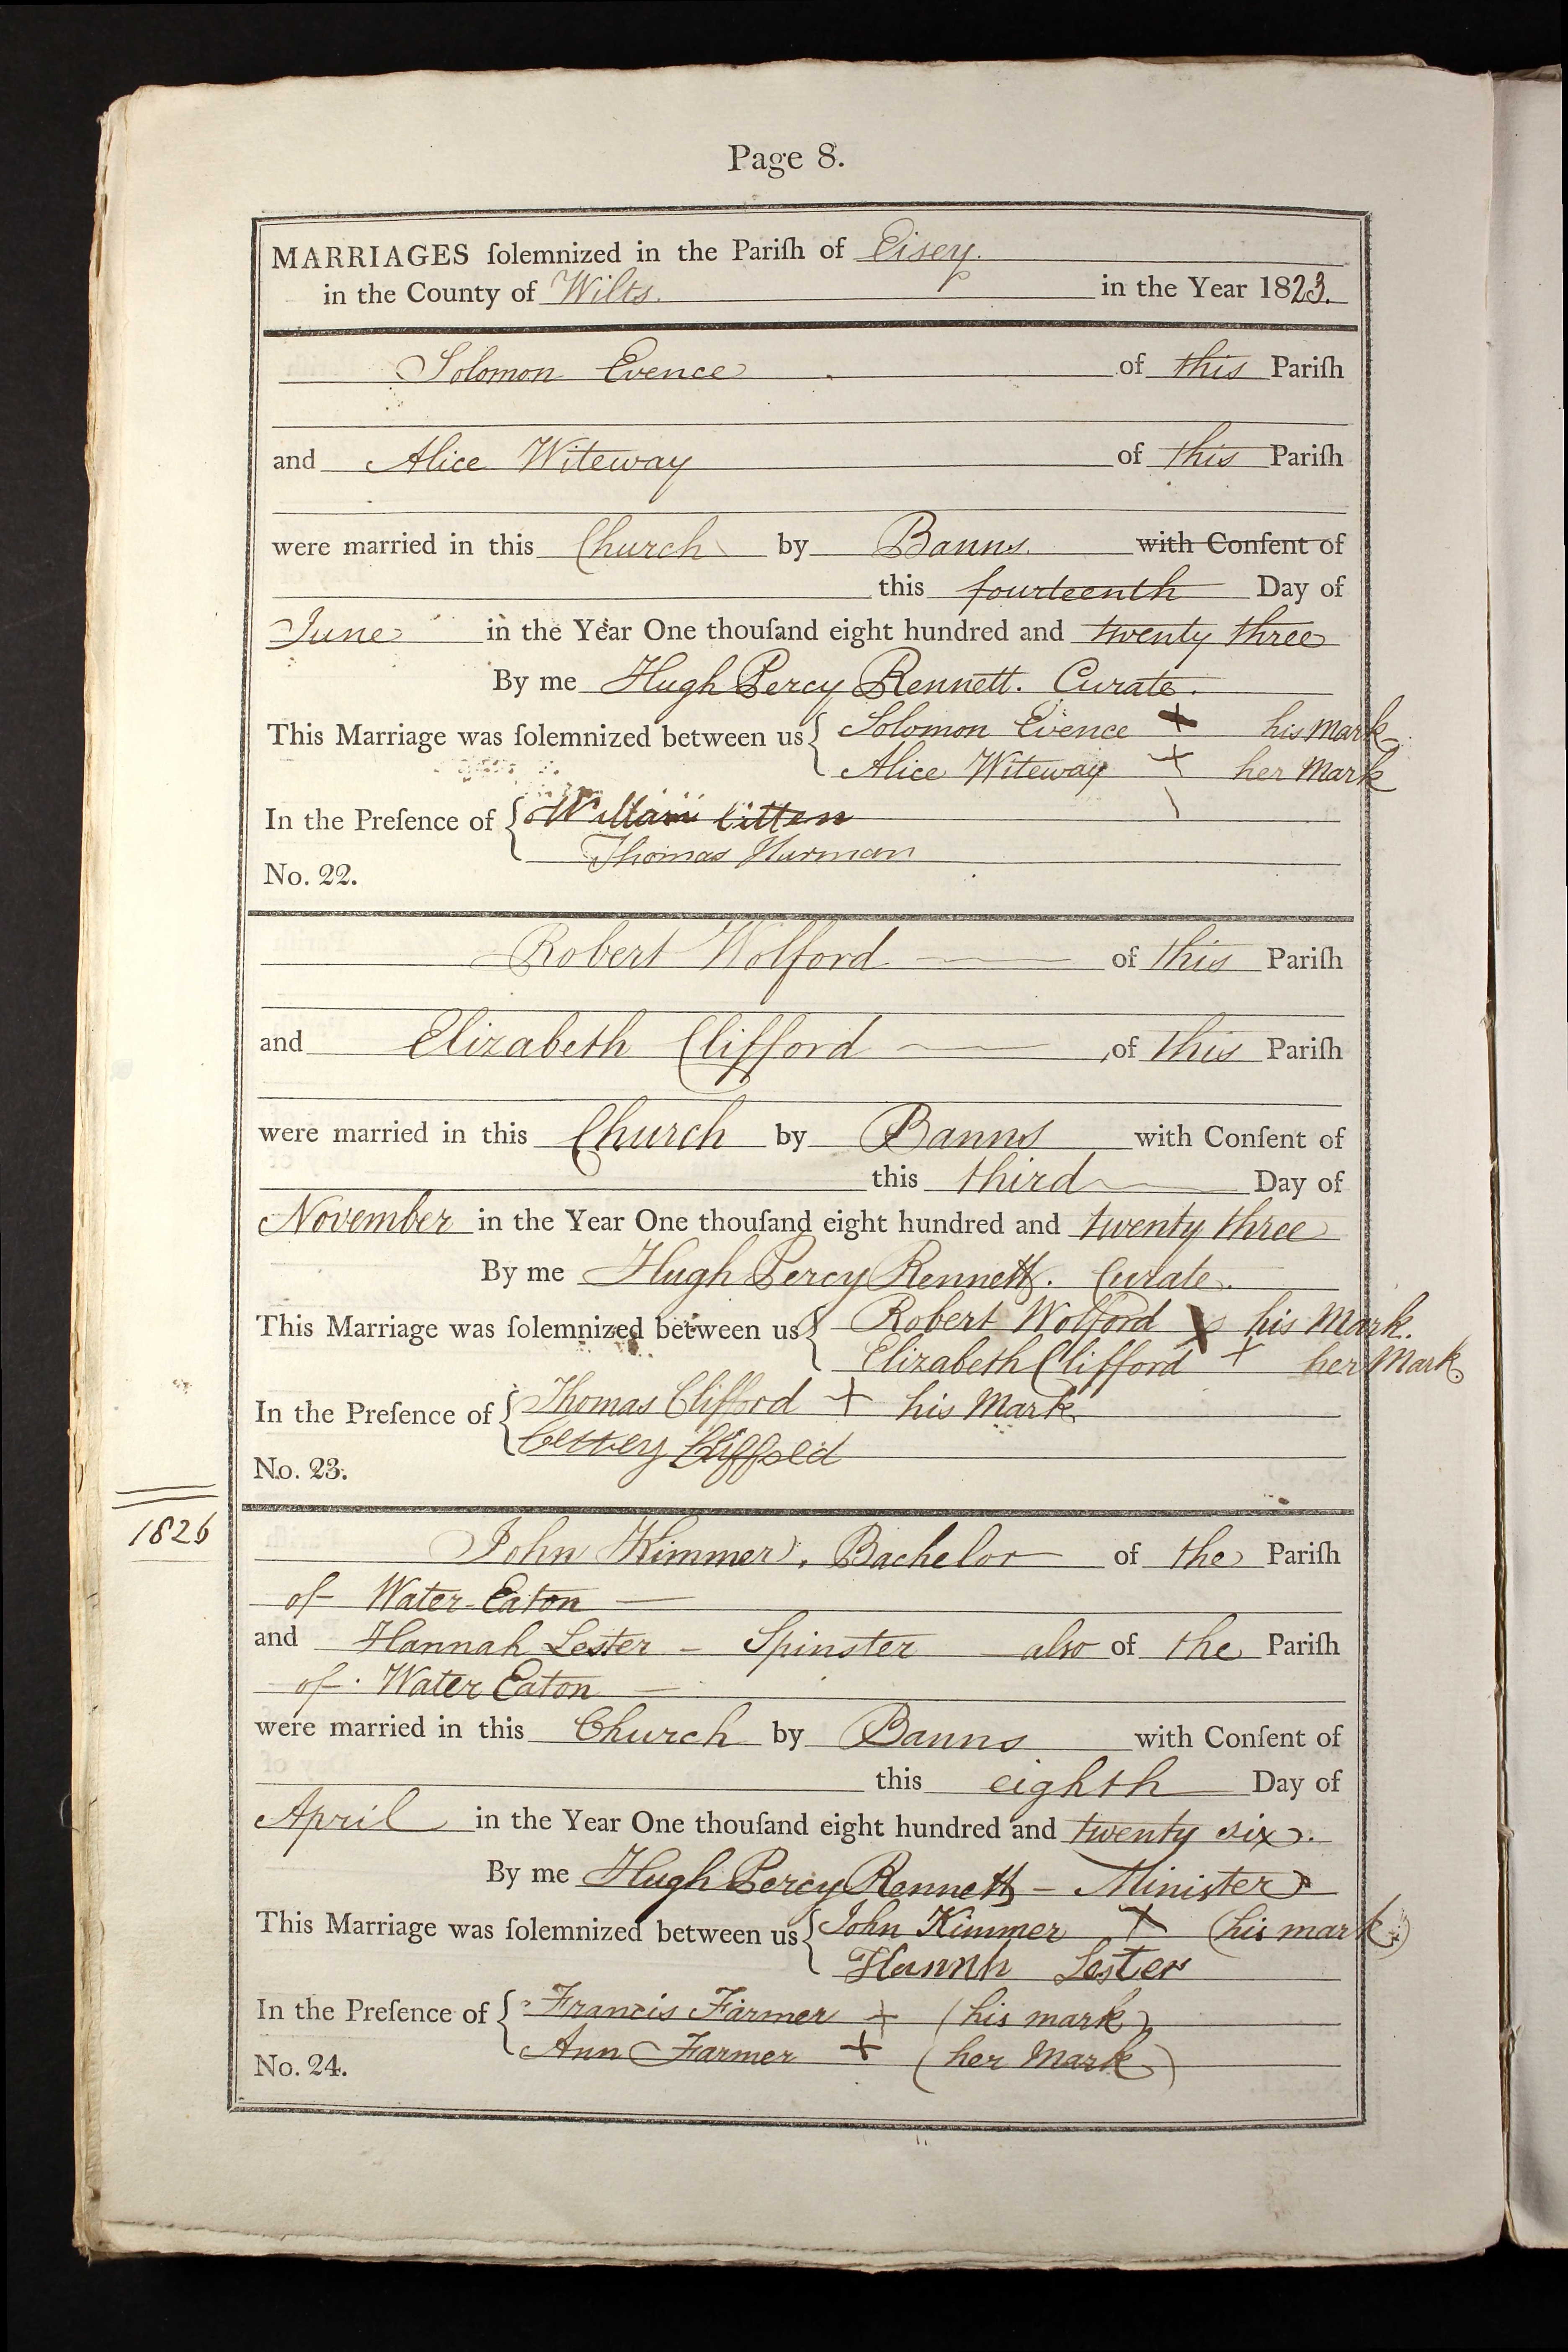 Page 8.
MARRIAGES ſolemnized in the Pariſh of Eisey.
in the County of Wilts. in the Year 1823.
Solomon Evence of this Pariſh
and Alice Witeway of this Pariſh
were married in this Church by Banns. with Conſent of
this fourteenth Day of
June in the Year One thouſand eight hundred and twenty three
By me Hugh Percy Rennett. Curate.
This Marriage was ſolemnized between us { Solomon Evence + his Mark
Alice Witeway + her Mark
In the Preſence of { William
Thomas Hurman
No. 22.
Robert Wolford of this Pariſh
and Elizabeth Clifford of this Pariſh
were married in this Church by Banns with Conſent of
this third Day of
November in the Year One thouſand eight hundred and twenty three
By me Hugh Percy Rennett. Curate.
This Marriage was ſolemnized between us { Robert Wolford X his Mark.
Elizabeth Clifford + her Mark.
In the Preſence of { Thomas Clifford + his Mark
No. 23.
1826
John Kimmer, Bachelor of the Pariſh
of Water-Eaton —
and Hannah Lester - Spinster also of the Pariſh
of Water Eaton —
were married in this Church by Banns with Conſent of
this eighth Day of
April in the Year One thouſand eight hundred and twenty six.
By me Hugh Percy Rennett - Minister
This Marriage was ſolemnized between us { John Kimmer X (his mark)
Hannh Lester
In the Preſence of { Francis Farmer + (his mark)
Ann Farmer + (her Mark)
No. 24.